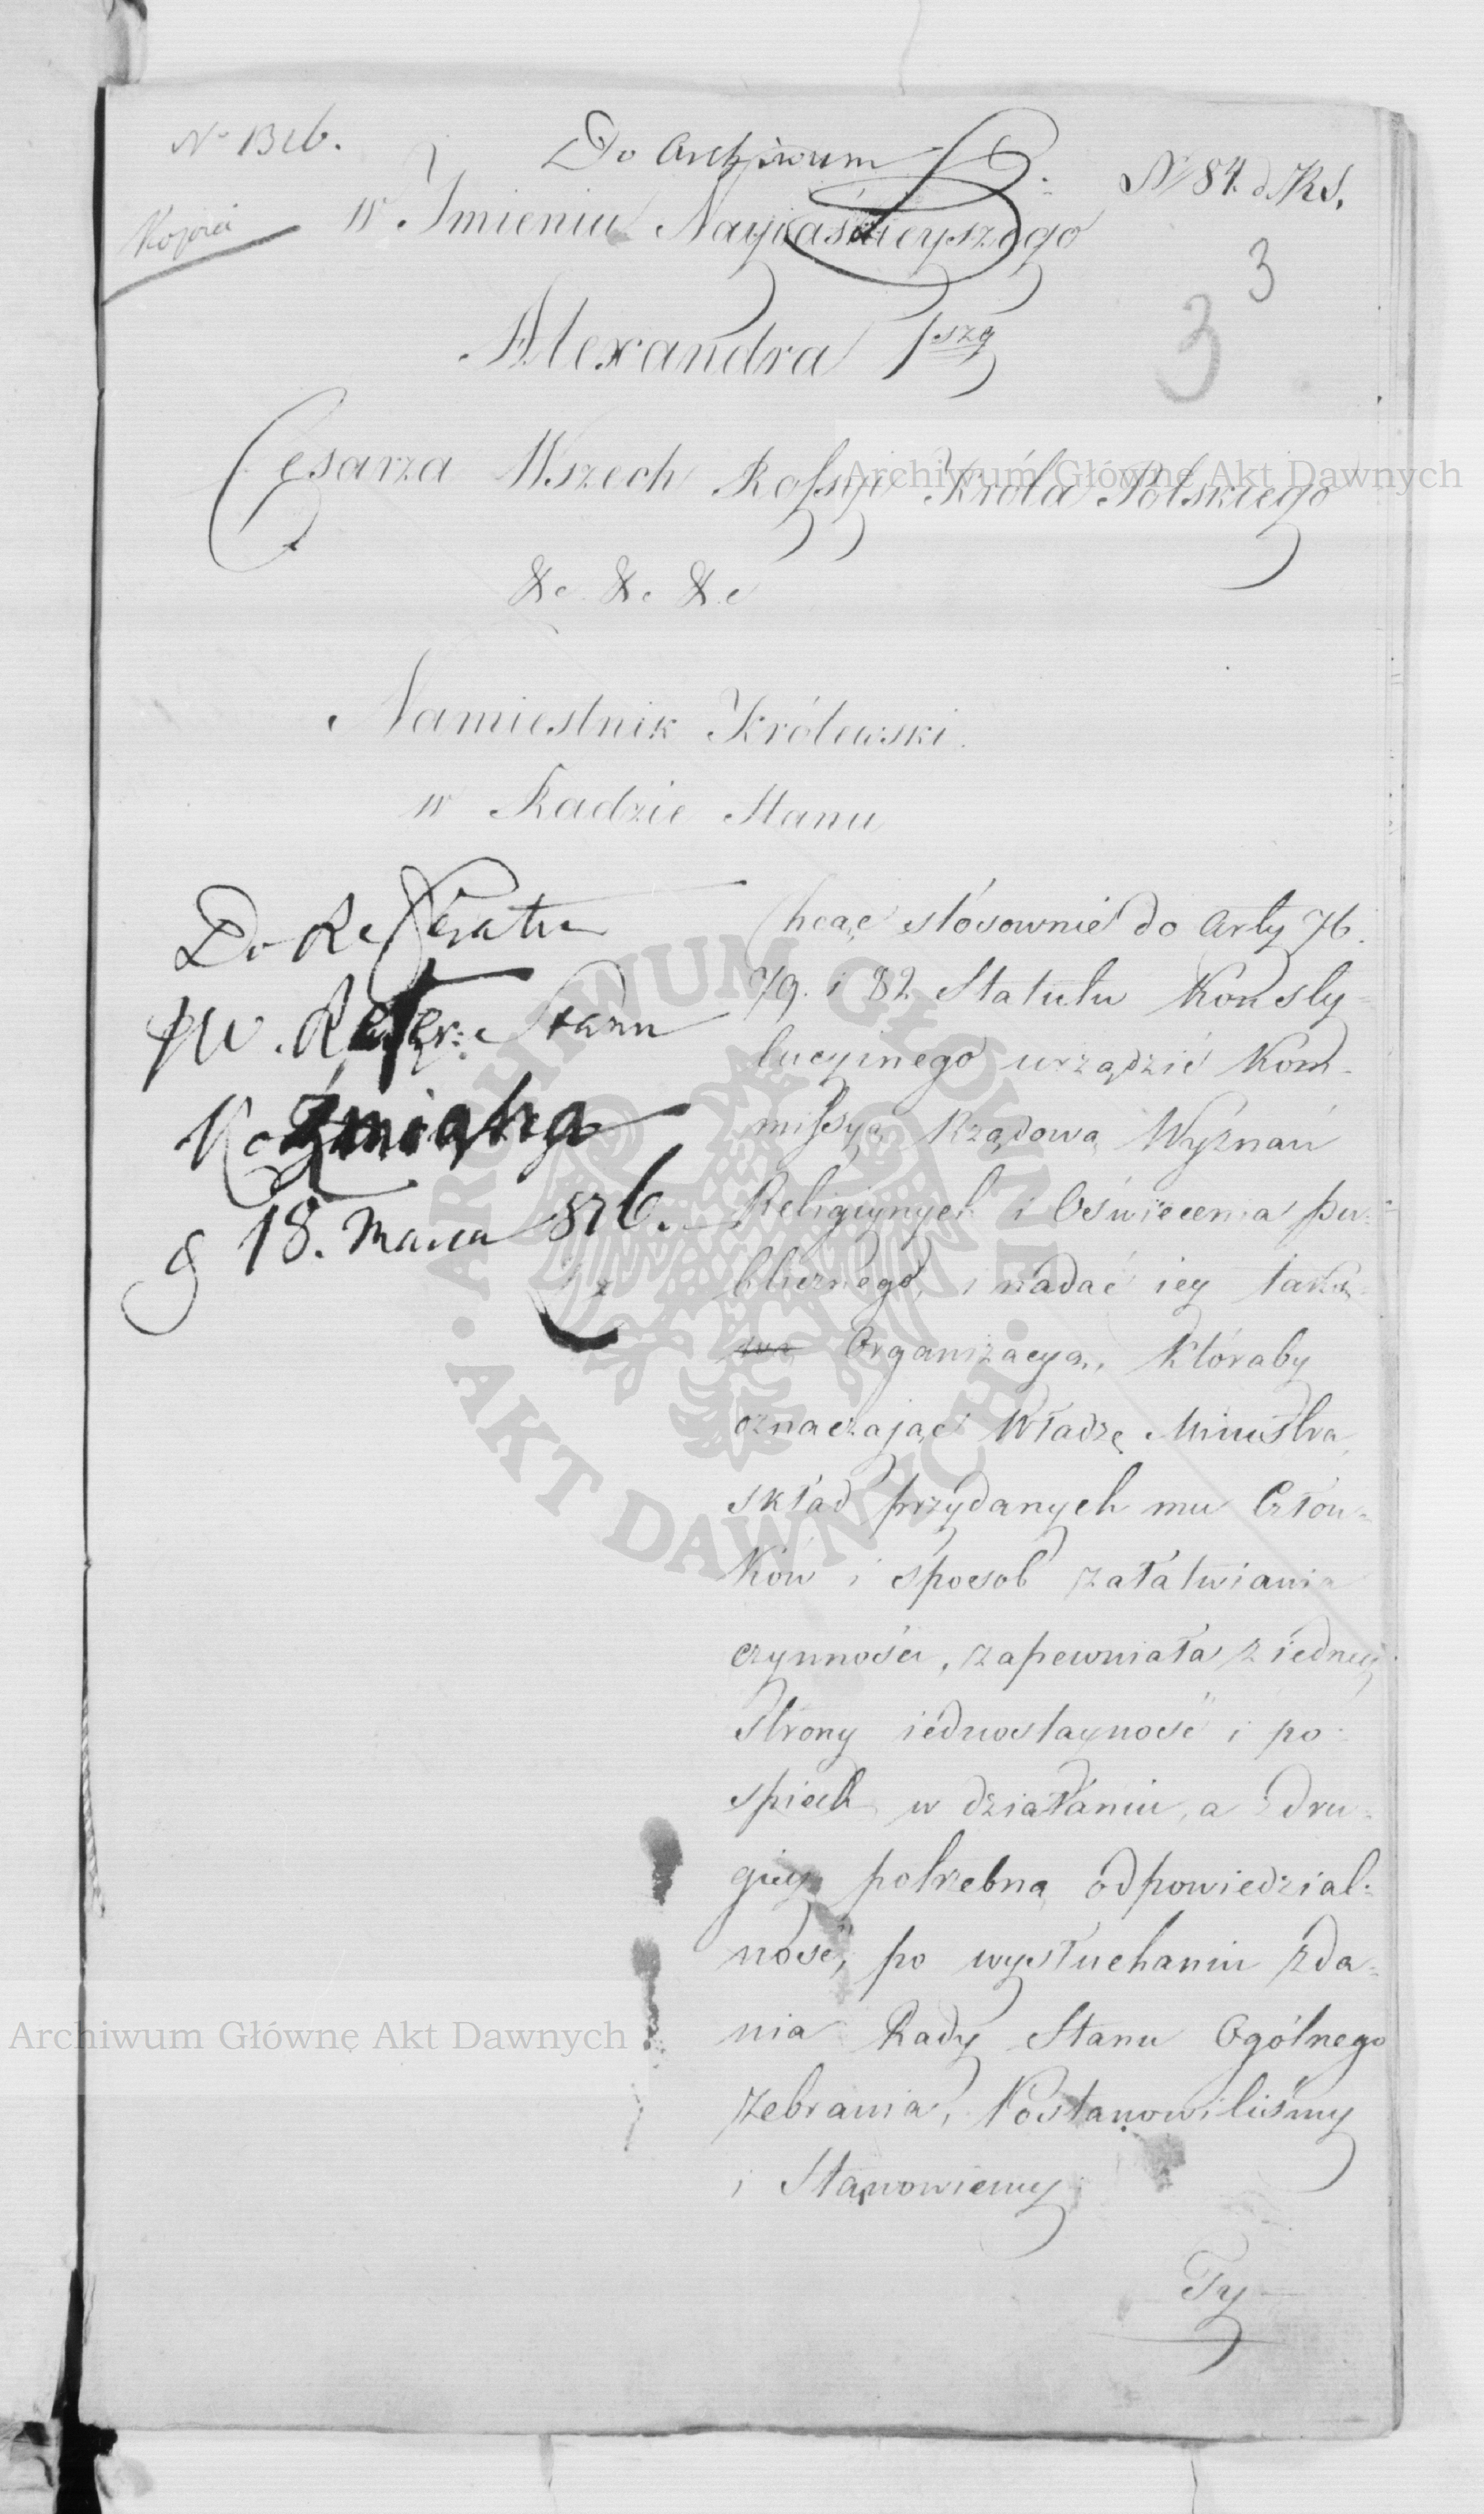 N° 1316.
Do Archiwum
N 84. d. RS.
Kopia
w Imieniu Nayiaśnieyszego
3
3
Alexandra 1szo
Cesarza Wszech Rossyi Króla Polskiego
&c. &c. &c
Namiestnik Królewski
w Radzie Stanu
Do Referatu
JW. Refer: Stanu
Koźmiana
d 18. Marca 816.
Chcąc stósownie do Arty 76.
79. i 82 Statutu Konsty=
tucyinego urządzić Kom=
missyą Rządową Wyznań
Religiynych i Oświecenia pu=
blicznego, i nadać iey takową
Organizacyą, któraby
oznaczaiąc Władzę Ministra,
skład przydanych mu Człon=
ków i sposob załatwiania
czynności, zapewniała z iedney
strony iednostayność i po=
spiech w działaniu, a z dru=
giey potrzebną odpowiedzial=
ność, po wysłuchaniu zda=
nia Rady Stanu Ogólnego
zebrania, Postanowiliśmy
i Stanowiemy
Ty
Archiwum Główne Akt Dawnych
Archiwum Główne Akt Dawnych
ARCHIWUM GŁÓWNE • AKT DAWNYCH •